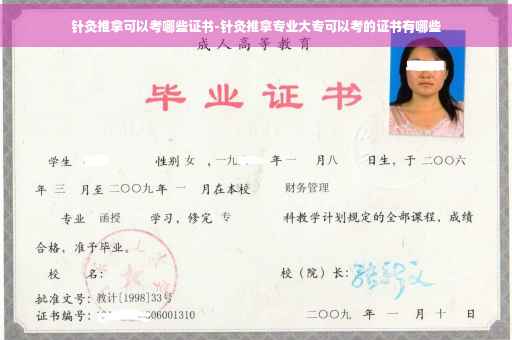 针灸推拿可以考哪些证书-针灸推拿专业大专可以考的证书有哪些
成人高等教育
毕业证书
学生 性别 女 ，一九 年 一 月 八 日生，于 二〇〇六
年 三 月至 二〇〇九 年 一 月在本校 财务管理
专业 函授 学习，修完 专 科教学计划规定的全部课程，成绩
合格，准予毕业。
校 名： 校（院）长：
批准文号：教计[1998]33号
证书编号： 06001310 二〇〇九 年 一 月 十 日